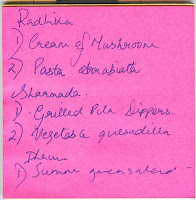 Radhika
1) Cream of Mushroom
2) Pasta abrabiata
Sharmada.
1). Grilled Pita Dippers.
2) Vegetable quesadilla
1) Summer green salad